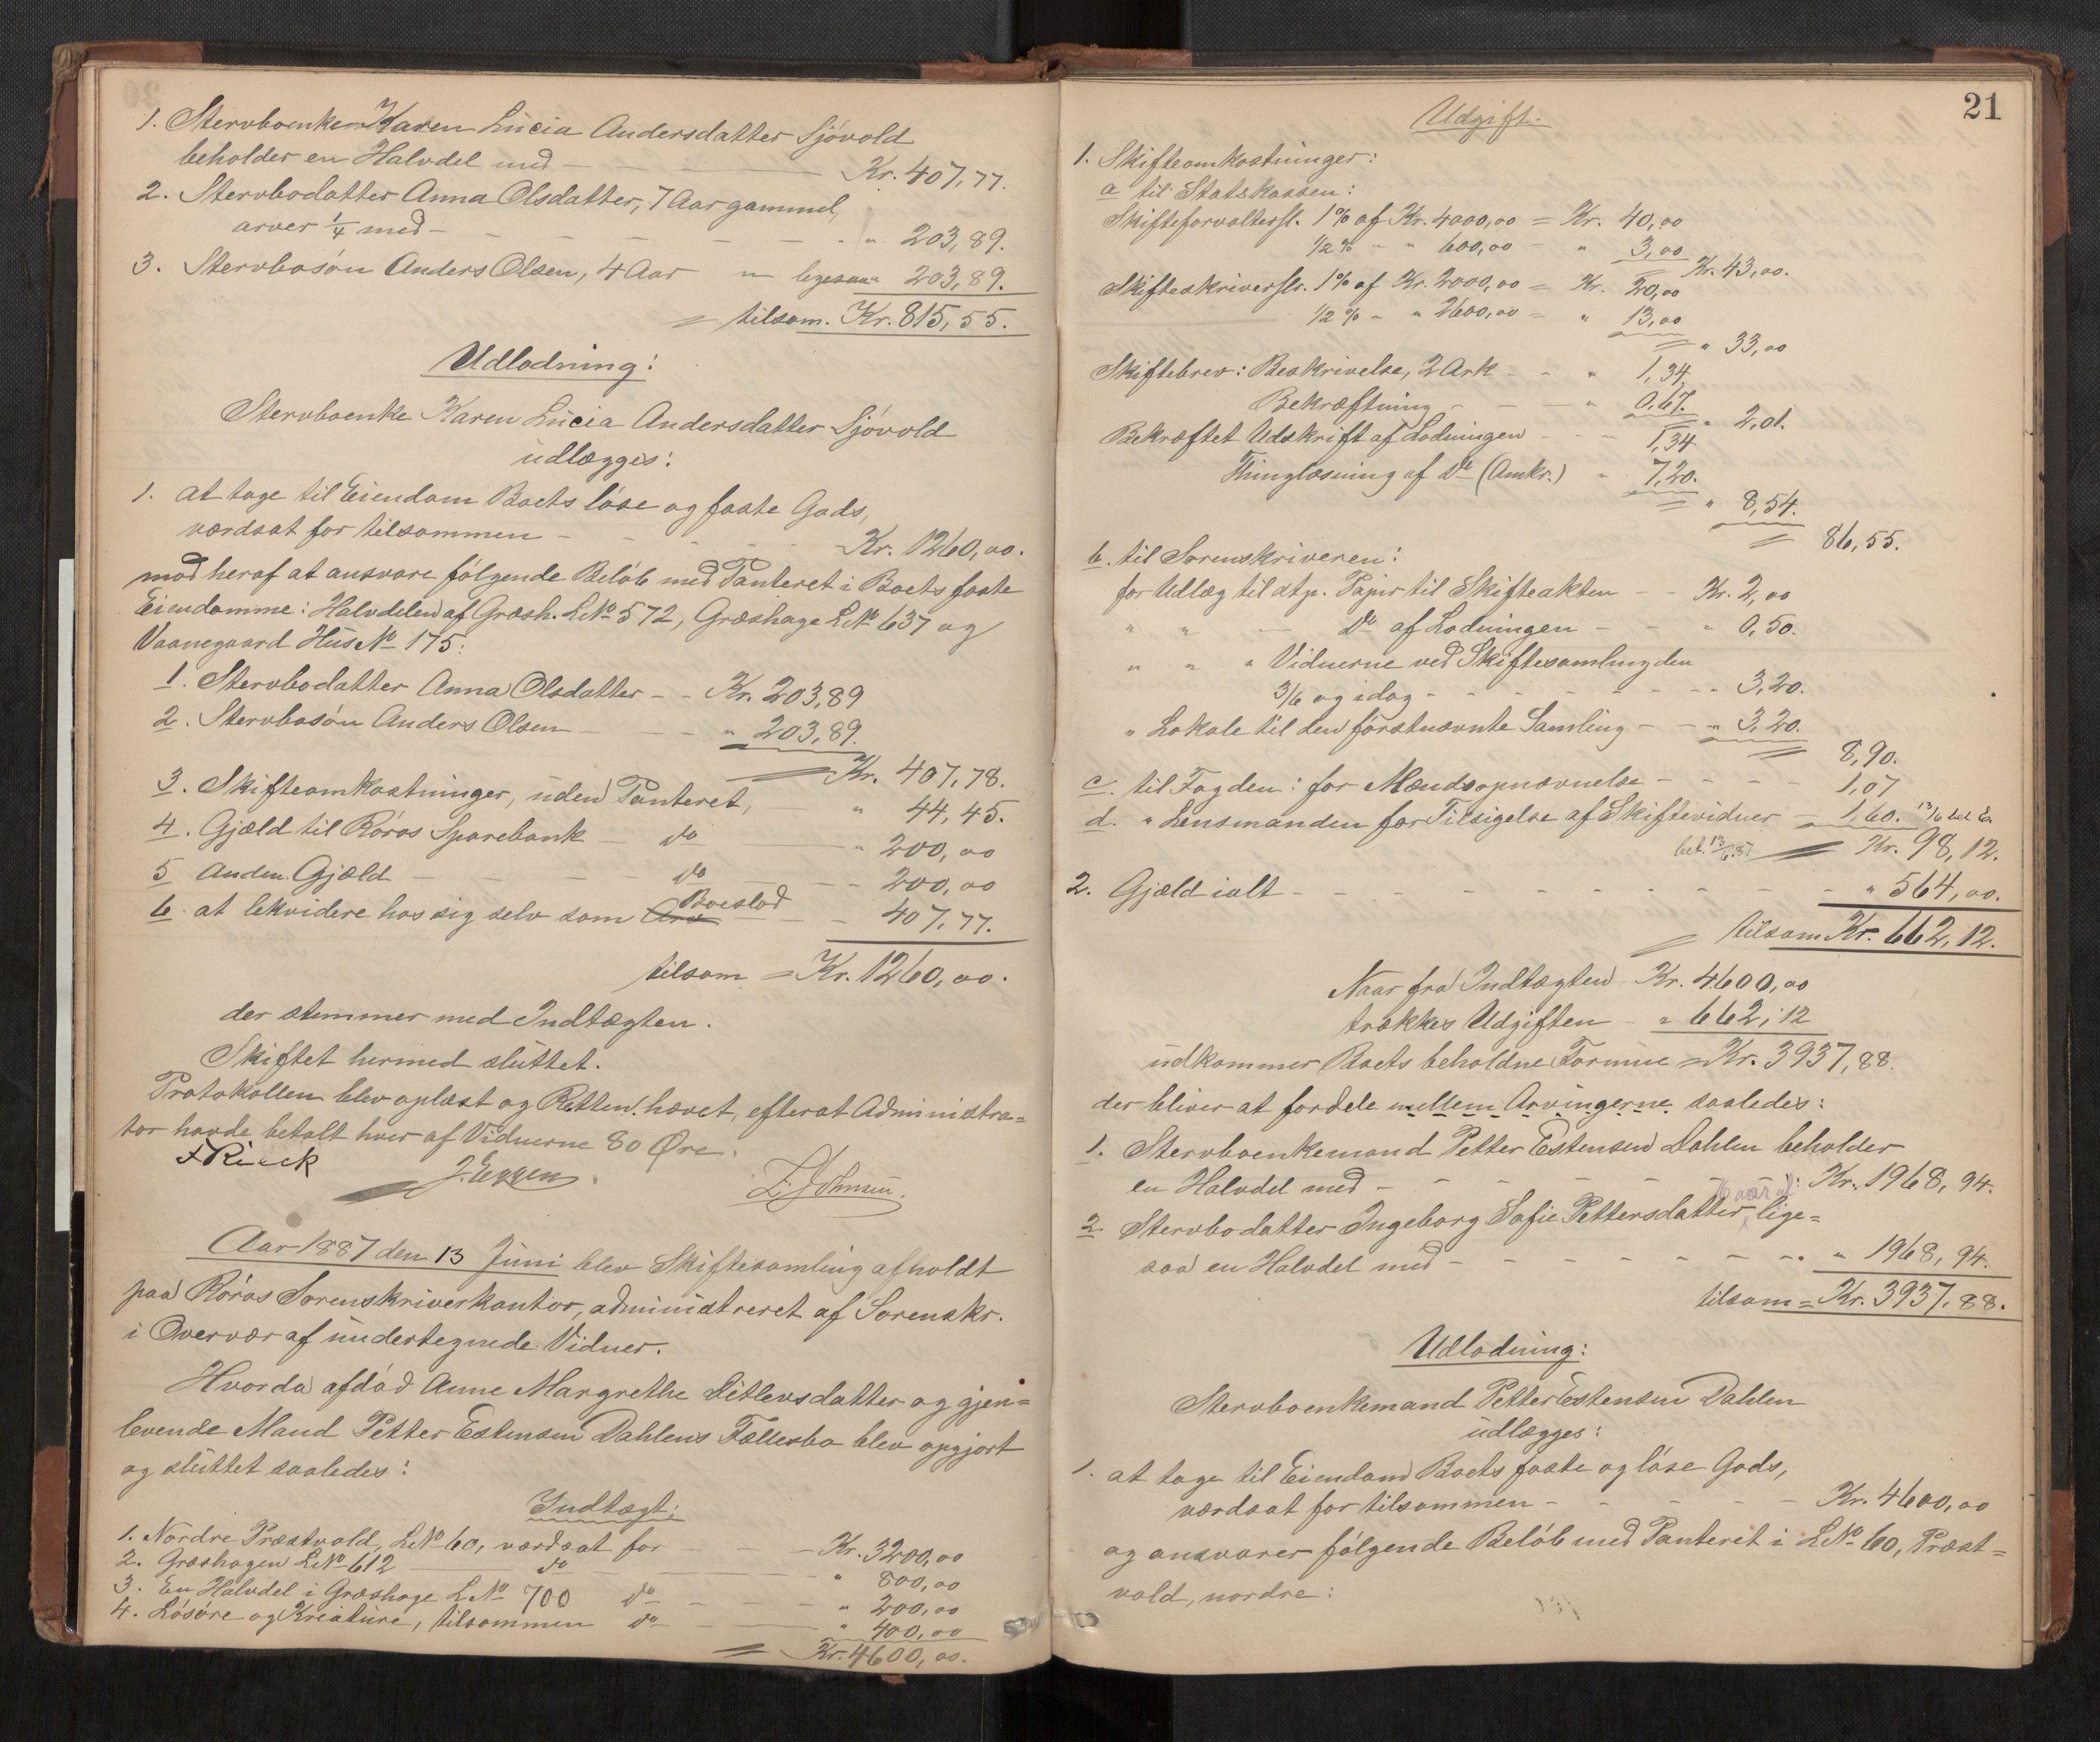 1. Stervboenken Karen Lucia Andersdatter Sjövold
beholder en Halvdel med — — Kr. 407,77.
2. Stervbodatter Anna Olsdatter, 7 Aar gammel,
arver 1/4 med — — — — — " 203,89.
3. Stervbosön Anders Olsen, 4 Aar — " ligesaa " 203,89.
= tilsam. Kr. 815,55.
Udlodning:
Stervboenke Karen Lucia Andersdatter Sjövold
udlægges:
1. at tage til Eiendom Boets löse og faste Gods,
værdsat for tilsammen — — — — Kr. 1260,00.
mod heraf at ansvare fölgende Belöb med Panteret i Boets faste
Eiendomme: Halvdelen af Græsh. LNo 572, Græshage LNo 637 og
Vaanegaard Hus No 175:
1. Stervbodatter Anna Olsdatter — — Kr. 203,89
2. Stervbosön Anders Olsen — — — " 203,89.
= Kr. 407,78.
3. Skifteomkostninger, uden Panteret, " 44,45.
4. Gjæld til Röros Sparebank — do — " 200,00
5 Anden Gjæld — — — — do — — 200,00
6. at likvidere hos sig selv som Arv Boeslod — — 407,77.
tilsam = Kr. 1260,00.
der stemmer med Indtægten.
Skiftet hermed sluttet.
Protokollen blev oplæst og Retten hævet, efterat Administra=
tor havde betalt hver af Vidnerne 80 Øre.
F Rieck J. Eggen. L. Johnsen.
Aar 1887 den 13 Juni blev Skiftesamling afholdt
paa Röros Sorenskriverkontor, administreret af Sorenskr.
i Overvær af undertegnede Vidner.
Hvorda afdöd Anne Margrethe Ditlevsdatter og gjen=
levende Mand Petter Estensen Dahlens Fællesbo blev opgjort
og sluttet saaledes:
Indtægt:
1. Nordre Præstvold, LNo 60, værdsat for — — — Kr. 3200,00
2. Græshagen LNo 612 — do — — " 800,00
3. En Halvdel i Græshage LNo 700 do — — — " 200,00
4. Lösöre og Kreature, tilsammen do — — " 400,00
= Kr. 4600,00.
21
Udgift.
1. Skifteomkostninger:
a til Statskassen:
Skifteforvaltersl. 1% af Kr. 4000,00 = Kr. 40,00
1/2% " " 600,00 — " 3,00
= Kr. 43,00.
Skifteskriversl. 1% af Kr. 2000,00 = Kr. 20,00
1/2% " " 2600,00 = " 13,00
= " 33,00
Skiftebrev: Beskrivelse, 2 Ark — — " 1,34
Bekræftning — — — " 0,67.
= " 2,01.
Bekræftet Udskrift af Lodningen — — 1,34
Thinglæsning af Do (Omkr.) " 7,20.
= " 8,54.
= 86,55.
b. til Sorenskriveren:
for Udlæg til stp. Papir til Skifteakten — — Kr. 2,00
" " — Do af Lodningen — — " 0,50.
" " " Vidnerne ved Skiftesamling den
3/6 og idag — — — — — — " 3,20.
" Lokale til den förstnævnte Samling — — " 3,20.
= 8,90.
c. til Fogden: for Mændsopnævnelse — — — — 1,07
d. " Lensmanden for Tilsigelse af Skiftevidner — 1,60. 13/6 bet
bet. 13/6 87 = Kr. 98,12.
2. Gjæld ialt — — — — — — — — — " 564,00.
= tilsam Kr. 662,12.
Naar fra Indtægten Kr. 4600,00
trækkes Udgiften — " 662,12
udkommer Boets beholdne Formue = Kr. 3937,88.
der bliver at fordele mellem Arvingerne saaledes:
1. Stervboenkemand Petter Estensen Dahlen beholder
en Halvdel med — — — — — — — Kr. 1968,94.
2 Stervbodatter Ingeborg Sofie Pettersdatter lige=
saa en Halvdel med — — — — — — — " 1968,94.
tilsam = Kr. 3937,88.
Udlodning:
Stervboenkemand Petter Estensen Dahlen
udlægges:
1. at tage til Eiendom Boets faste og löse Gods,
værdsat for tilsammen — — — — — — Kr. 4600,00
og ansvarer fölgende Belöb med Panteret i LNo 60, Præst=
vold, nordre: